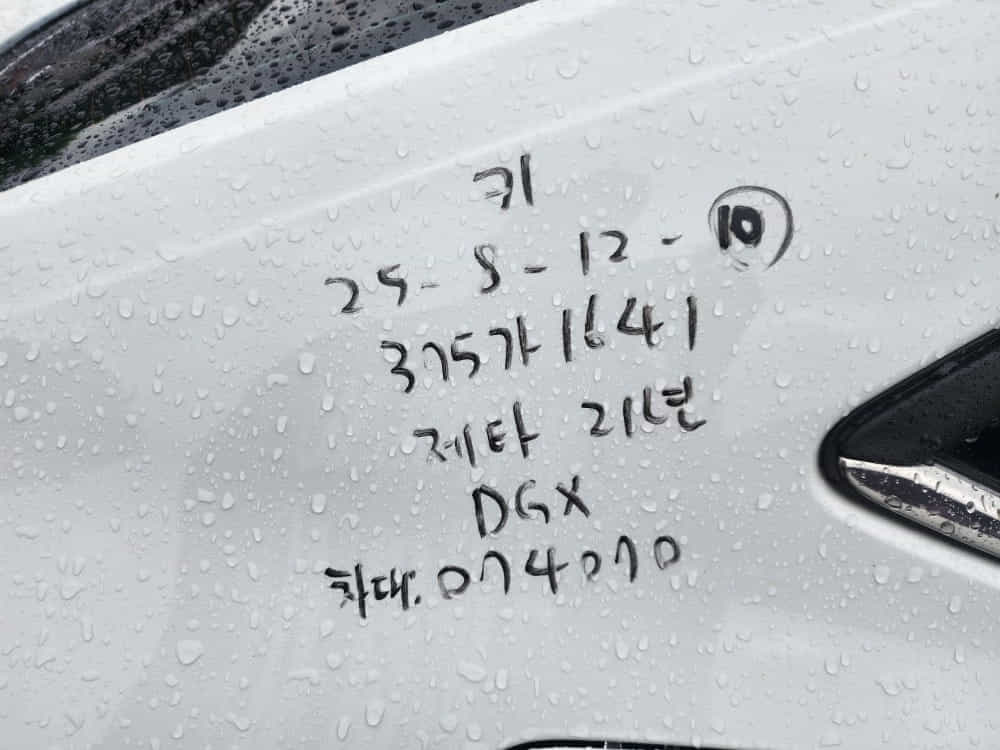 키
25-8-12-⑩
375가1641
제타 21년
DGX
차대:074070